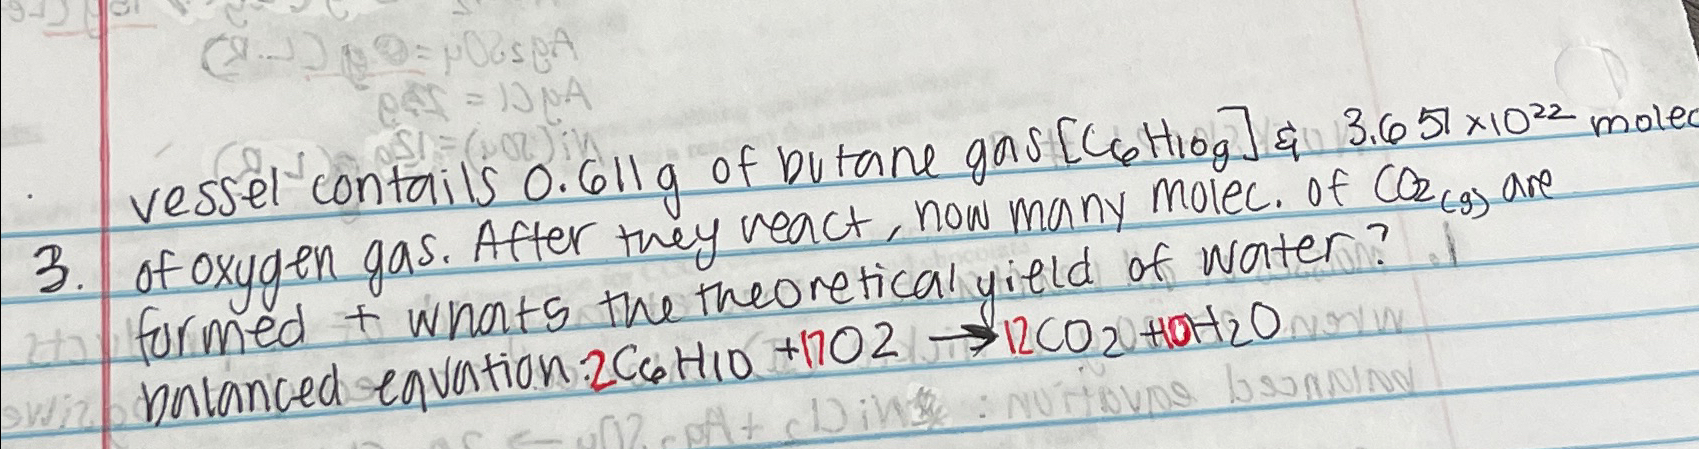 vessel contails 0.611g of butane gas [C6H10g] & 3.651 x10²² molec
3. of oxygen gas. After they react, how many molec. of CO2(g) are
formed + whats the theoretical yield of water?
balanced equation: 2C6H10 +17O2 → 12CO2 +10H2O